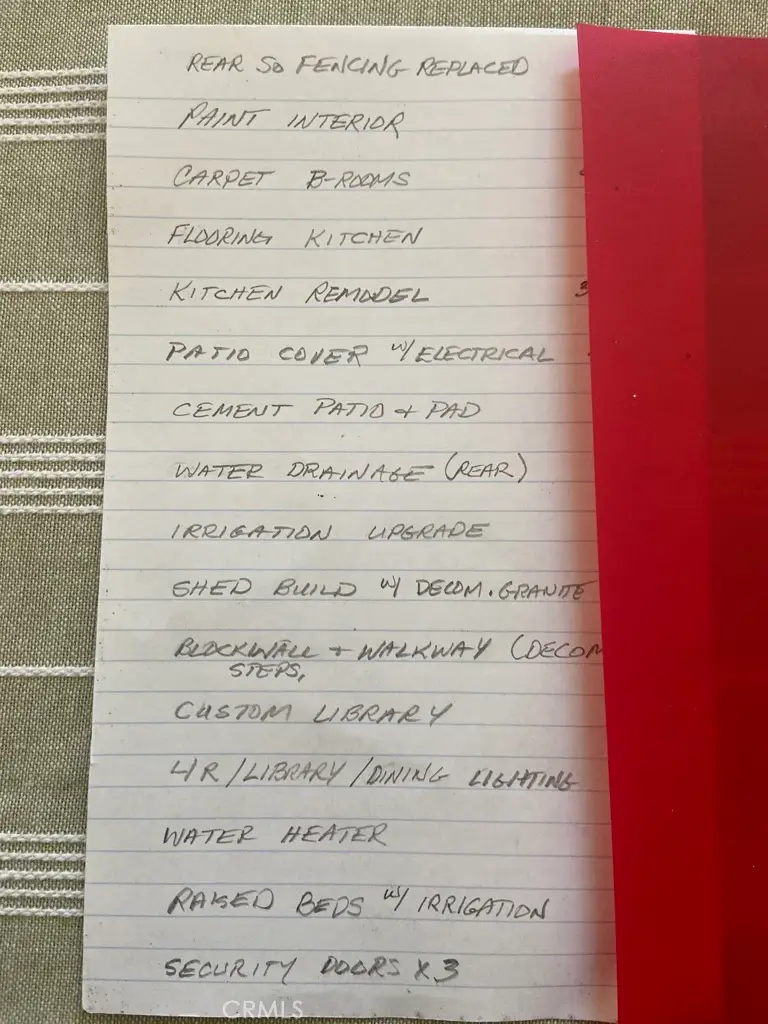 REAR SO FENCING REPLACED
PAINT INTERIOR
CARPET B-ROOMS
FLOORING KITCHEN
KITCHEN REMODEL 3
PATIO COVER w/ ELECTRICAL
CEMENT PATIO + PAD
WATER DRAINAGE (REAR)
IRRIGATION UPGRADE
SHED BUILD w/ DECOM. GRANITE
BLOCKWALL + WALKWAY (DECOM
STEPS,
CUSTOM LIBRARY
L/R /LIBRARY /DINING LIGHTING
WATER HEATER
RAISED BEDS w/ IRRIGATION
SECURITY DOORS X 3
CRMLS